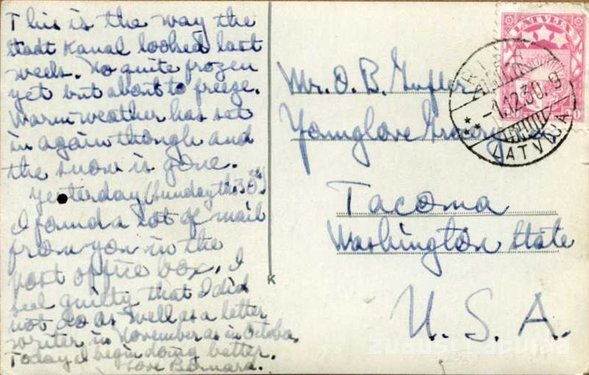 This is the way the
stadt Kanal looked last
week. No quite frozen
yet but about to freeze.
Warm weather has set
in again though and
the snow is gone.
Yesterday (Sunday the 30th)
I found a lot of mail
from you in the
post office box. I
feel guilty that I did
not do as well as a letter
writer in November as in October.
Today I begin doing better.
Love Bernard.
LATVIJA
RIGA
-1.12.30.9
LATVIJA
Mr. O. B.
Younglove
Tacoma
Washington State
U. S. A.
K